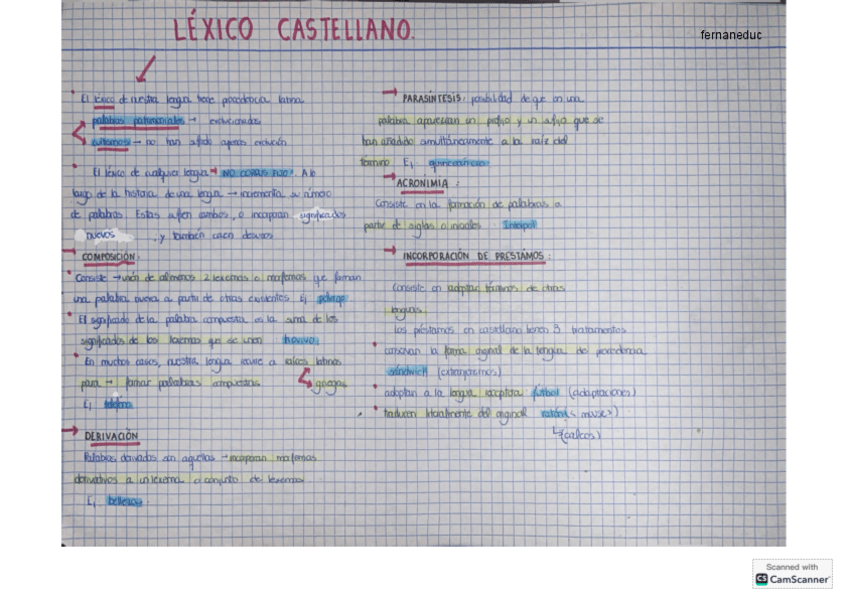 LÉXICO CASTELLANO.
fernaneduc
El léxico de nuestra lengua tiene procedencia latina
palabras patrimoniales → evolucionadas
cultismos → no han sufrido apenas evolución
El léxico de cualquier lengua → NO CORPUS FIJO. A lo
largo de la historia de una lengua → incrementa su número
de palabras. Estas sufren cambios, o incorporan significados
nuevos, y también caen desuso
COMPOSICIÓN:
Consiste → unión de al menos 2 lexemas o morfemas que forman
una palabra nueva a partir de otras existentes. Ej
El significado de la palabra compuesta es la suma de los
significados de los lexemas que se unen
En muchos casos, nuestra lengua recurre a raíces latinas
para → formar palabras compuestas griegas
Ej teléfono
DERIVACIÓN
Palabras derivadas son aquellas → incorporan morfemas
derivativos a un lexema o conjunto de lexemas
Ej belleza
PARASÍNTESIS: posibilidad de que en una
palabra aparezcan un prefijo y un sufijo que se
han añadido simultáneamente a la raíz del
término. Ej quinceañero
ACRONIMIA:
Consiste en la formación de palabras a
partir de siglas o iniciales Interpol
INCORPORACIÓN DE PRÉSTAMOS:
Consiste en adoptar términos de otras
lenguas
Los préstamos en castellano tienen 3 tratamientos
conservan la forma original de la lengua de procedencia
sándwich (extranjerismos)
adaptan a la lengua receptora fútbol (adaptaciones)
traducen literalmente del original ratón (< mouse>)
↳ (calcos)
Scanned with
CS CamScanner